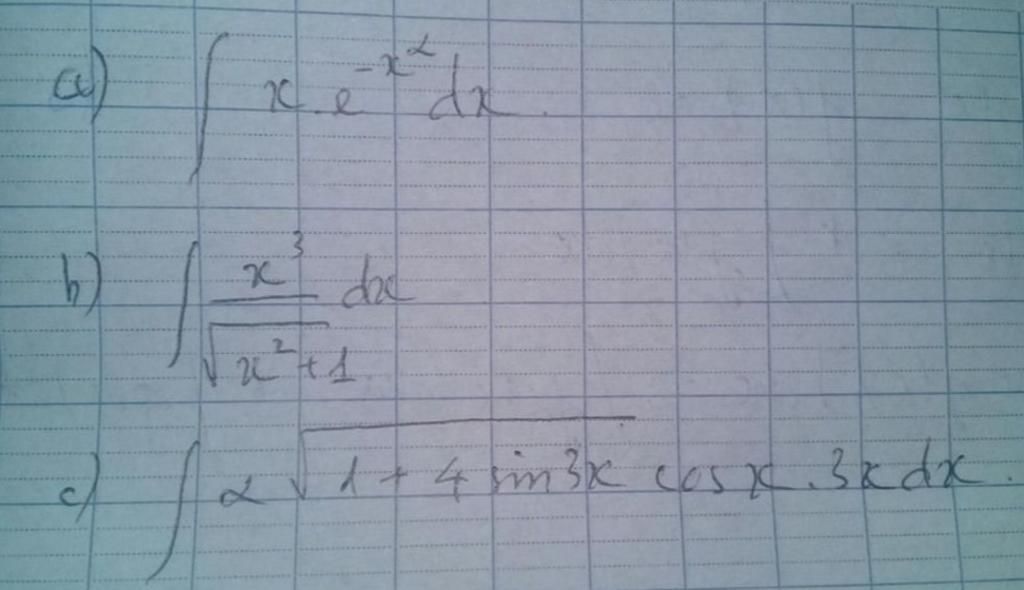 a) ∫ x e^{-x^2} dx.
b) ∫ \frac{x^3}{\sqrt{x^2+1}} dx
c) ∫ 2 \sqrt{1+4 sin 3x} cos x . 3x dx.